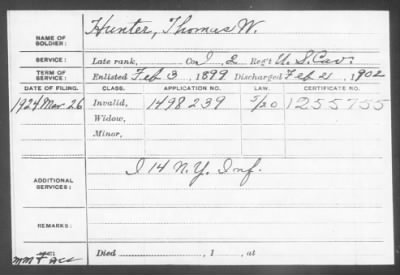 NAME OF SOLDIER: Hunter, Thomas W.
SERVICE: Late rank, Co. I, 2 Reg't U.S. Cav.
TERM OF SERVICE: Enlisted Feb 3, 1899 Discharged Feb 2, 1902
DATE OF FILING. CLASS. APPLICATION NO. LAW. CERTIFICATE NO.
1924 Mar 26 Invalid, 1498239 5/20 1255755
Widow,
Minor,
ADDITIONAL SERVICES: I 14 N.Y. Inf.
REMARKS:
Died , 1 , at